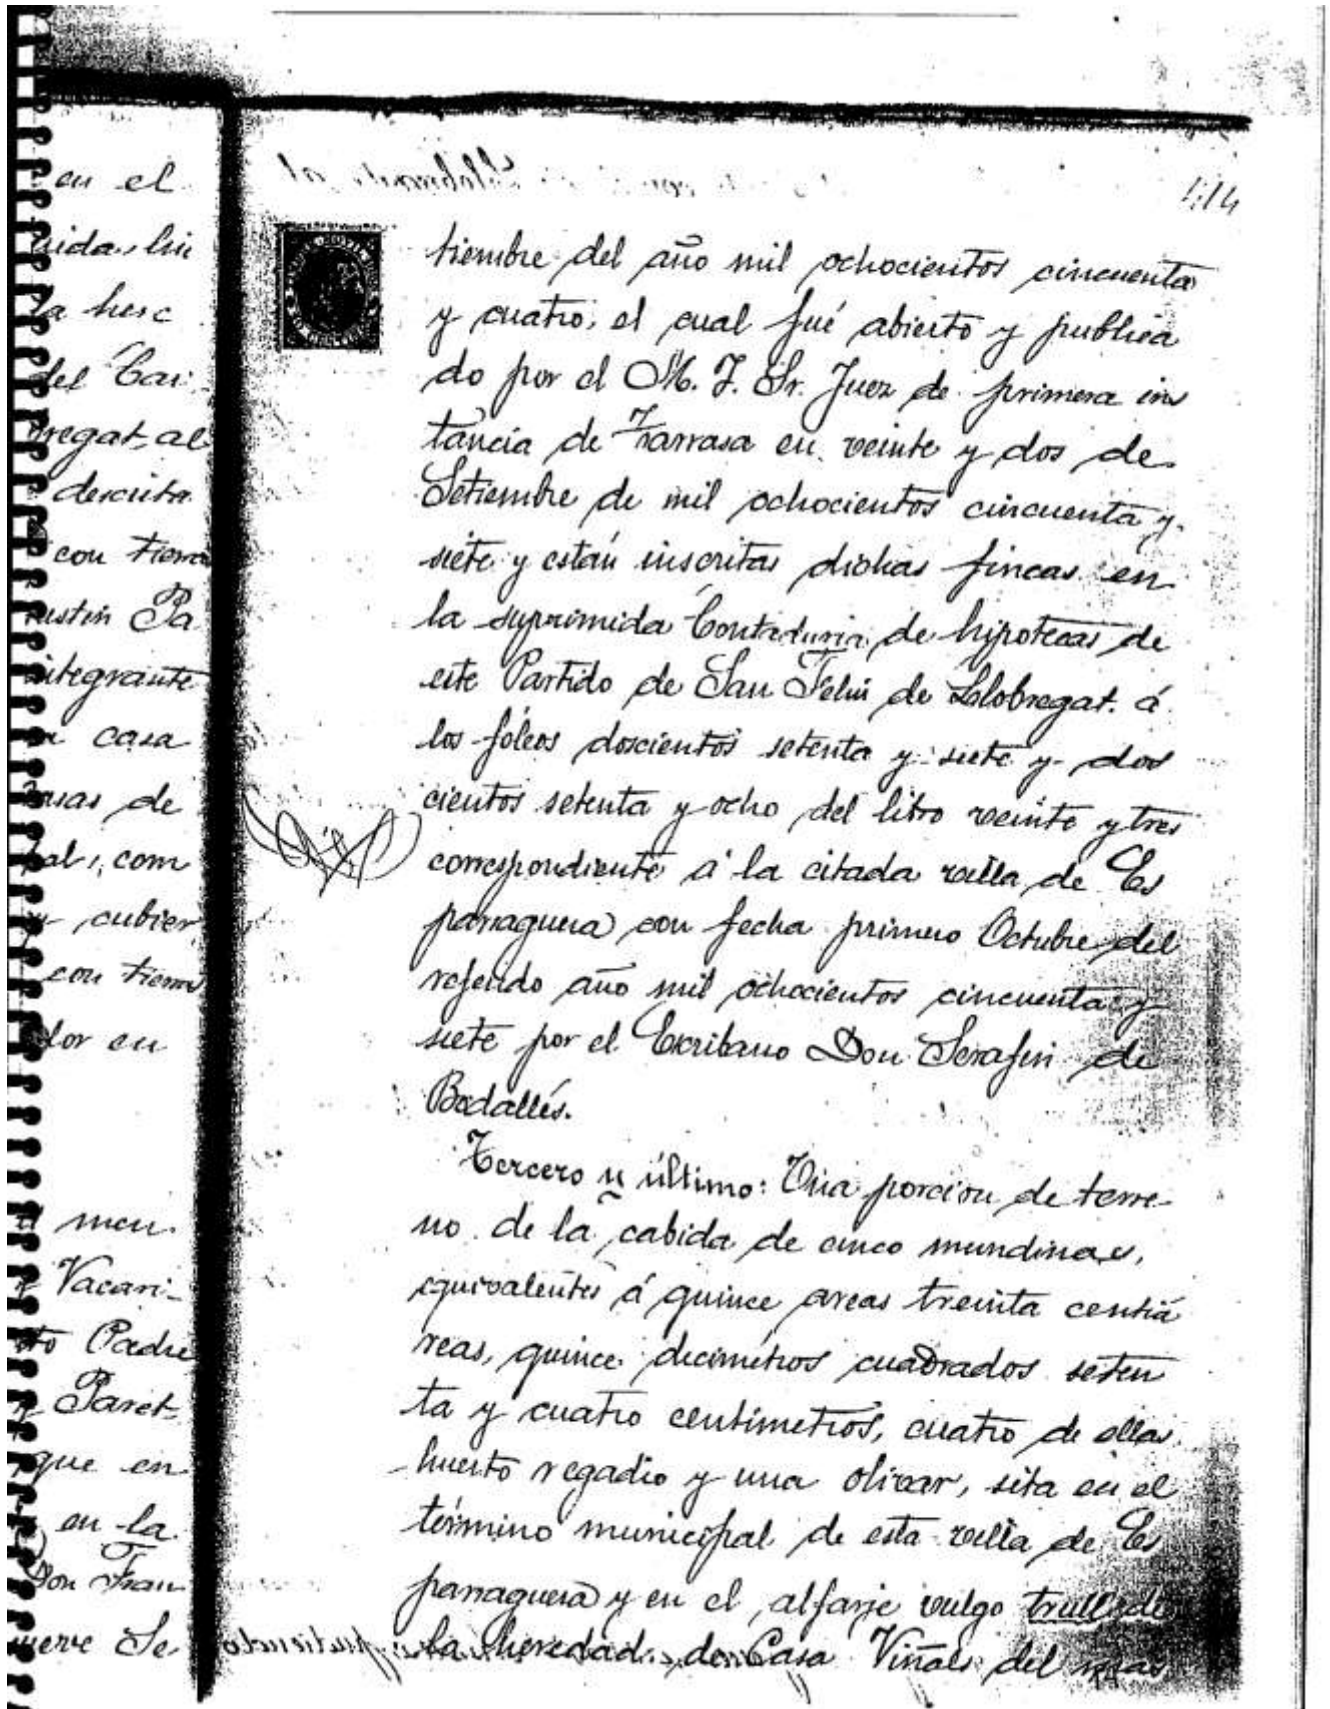 en el
uida lin
la here
del Car
bregat al
descrita
con tierra
ustin Pa
integrante
casa
de
com
cubier
con tierra
dor en
men
Vacari-
to Padre
Paret
que en
en la
Don Fran
Se
tiembre del año mil ochocientos cincuenta
y cuatro, el cual fué abierto y publica
do por el M. I. Sr. Juez de primera ins
tancia de Tarrasa en veinte y dos de
Setiembre de mil ochocientos cincuenta y
siete y están inscritas dichas fincas en
la suprimida Contaduria de hipotecas de
este Partido de San Feliu de Llobregat á
los fóleos doscientos setenta y siete y dos
cientos setenta y ocho del libro veinte y tres
correspondiente á la citada villa de Es
parraguera con fecha primero Octubre del
referido año mil ochocientos cincuenta y
siete por el Escribano Don Serafin de
Badallés.
Tercero y último: Una porcion de terre-
no de la cabida de cinco mundinas,
equivalentes á quince areas treinta centiá
reas, quince decimétros cuadrados seten
ta y cuatro centimetros, cuatro de ellas
huerto regadio y una olivar, sita en el
término municipal de esta villa de Es
parraguera y en el alfarje vulgo trull de
la heredad den Casa Viñals del mas